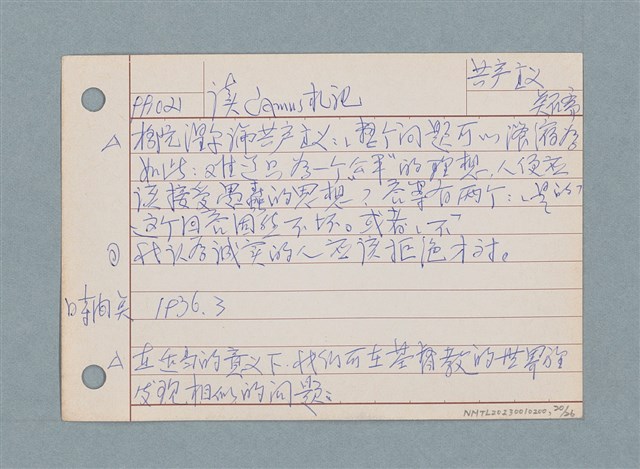 共产主义
P9021 读Camus札记
△ 格尼涅尔论共产主义:「整个问题可以演缩为
如此:难道只为一个“公平”的理想,人便应
该接受愚蠢的思想”?答案有两个:「是的」
这个回答固然不坏。或者「不」
@ 我认为诚实的人应该拒绝才对。
时间关 1936.3
△ 在适当的意义下,我们可在基督教的世界里
发现相似的问题:
NMTL20230010200, 20/26